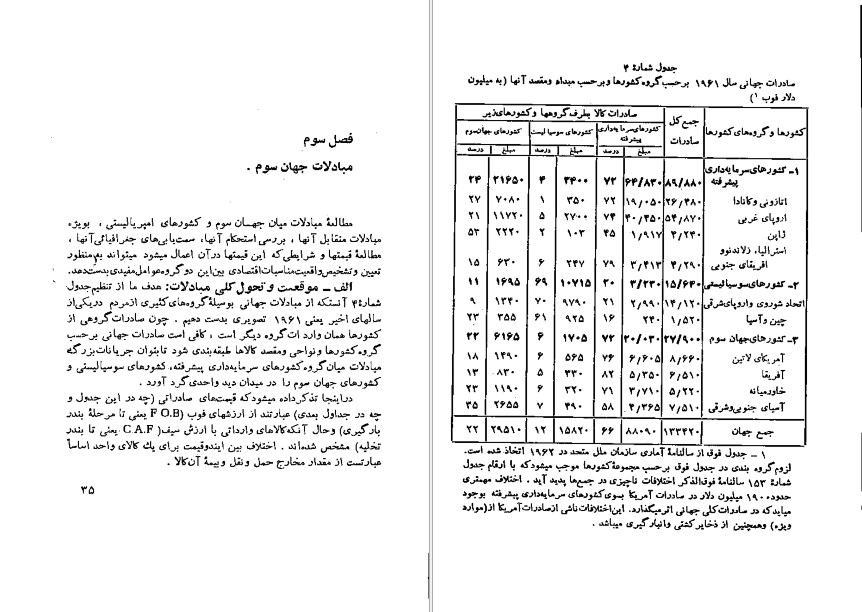 جدول شمارهٔ ۴
صادرات جهانی سال ۱۹۶۱ برحسب گروه کشورها و برحسب مبداء و مقصد آنها (به میلیون
دلار فوب ۱)
کشورها و گروه‌های کشورها جمع کل صادرات صادرات کالا بطرف گروهها و کشورهای زیر
کشورهای سرمایه‌داری پیشرفته کشورهای سوسیالیست کشورهای جهان سوم
مبلغ درصد مبلغ درصد مبلغ درصد
۱- کشورهای سرمایه‌داری
پیشرفته ۸۹/۸۸۰ ۶۴/۸۳۰ ۷۲ ۳۴۰۰ ۴ ۲۱۶۵۰ ۲۴
اتازونی و کانادا ۲۶/۴۸۰ ۱۹/۰۵۰ ۷۲ ۳۵۰ ۱ ۷۰۸۰ ۲۷
اروپای غربی ۵۴/۸۷۰ ۴۰/۴۵۰ ۷۴ ۲۷۰۰ ۵ ۱۱۷۲۰ ۲۱
ژاپن ۴/۲۴۰ ۱/۹۱۷ ۴۵ ۱۰۳ ۲ ۲۲۲۰ ۵۳
استرالیا، زلاندنو و
افریقای جنوبی ۴/۲۹۰ ۳/۴۱۳ ۷۹ ۲۴۷ ۶ ۶۳۰ ۱۵
۲- کشورهای سوسیالیستی ۱۵/۶۴۰ ۳/۲۳۰ ۲۰ ۱۰۷۱۵ ۶۹ ۱۶۹۵ ۱۱
اتحاد شوروی و اروپای شرقی ۱۴/۱۲۰ ۲/۹۹۰ ۲۱ ۹۷۹۰ ۷۰ ۱۳۴۰ ۹
چین و آسیا ۱/۵۲۰ ۲۴۰ ۱۶ ۹۲۵ ۶۱ ۳۵۵ ۲۳
۳- کشورهای جهان سوم ۲۷/۹۰۰ ۲۰/۰۳۰ ۷۲ ۱۷۰۵ ۶ ۶۱۶۵ ۲۲
آمریکای لاتین ۸/۶۶۰ ۶/۶۰۵ ۷۶ ۵۶۵ ۶ ۱۴۹۰ ۱۸
آفریقا ۶/۵۱۰ ۵/۳۵۰ ۸۲ ۳۳۰ ۵ ۸۳۰ ۱۳
خاورمیانه ۵/۲۲۰ ۳/۷۱۰ ۷۱ ۳۲۰ ۶ ۱۱۹۰ ۲۳
آسیای جنوبی و شرقی ۷/۵۱۰ ۴/۳۶۵ ۵۸ ۴۹۰ ۷ ۲۶۵۵ ۳۵
جمع جهان ۱۳۳۴۲۰ ۸۸۰۹۰ ۶۶ ۱۵۸۲۰ ۱۲ ۲۹۵۱۰ ۲۲
۱ - جدول فوق از سالنامهٔ آماری سازمان ملل متحد در ۱۹۶۲ اتخاذ شده است.
لزوم گروه بندی در جدول فوق برحسب مجموعهٔ کشورها موجب میشود که با ارقام جدول
شمارهٔ ۱۵۳ سالنامهٔ فوق‌الذکر اختلافات ناچیزی در جمع‌ها پدید آید . اختلاف مهمتری
حدود ۱۹۰ میلیون دلار در صادرات آمریکا بسوی کشورهای سرمایه‌داری پیشرفته بوجود
میاید که در صادرات کلی جهانی اثر میگذارد. این اختلافات ناشی از صادرات آمریکا از (موارد
ویژه) و همچنین از ذخایر کشتی و انبارگیری میباشد .
فصل سوم
مبادلات جهان سوم .
مطالعهٔ مبادلات میان جهان سوم و کشورهای امپریالیستی ، بویژه
مبادلات متقابل آنها ، بررسی استحکام آنها، سمت‌یابی‌های جغرافیائی آنها ،
مطالعهٔ قیمتها و شرایطی که این قیمتها در آن اعمال میشود میتواند به منظور
تعیین و تشخیص واقعیت مناسبات اقتصادی بین این دو گروه عوامل مفیدی بدست دهد.
الف - موقعیت و تحول کلی مبادلات: هدف ما از تنظیم جدول
شمارهٔ ۴ آنستکه از مبادلات جهانی بوسیلهٔ گروه‌های کثیری از مردم در یکی از
سالهای اخیر یعنی ۱۹۶۱ تصویری بدست دهیم . چون صادرات گروهی از
کشورها همان واردات گروه دیگر است ، کافی است صادرات جهانی برحسب
گروه کشورها و نواحی و مقصد کالاها طبقه‌بندی شود تا بتوان جریانات بزرگ
مبادلات میان گروه کشورهای سرمایه‌داری پیشرفته، کشورهای سوسیالیستی و
کشورهای جهان سوم را در میدان دید واحدی گرد آورد .
در اینجا تذکر داده میشود که قیمت‌های صادراتی (چه در این جدول و
چه در جداول بعدی) عبارتند از ارزشهای فوب (F.O.B یعنی تا مرحلهٔ بندر
بارگیری) و حال آنکه کالاهای وارداتی با ارزش سیف( C.A.F یعنی تا بندر
تخلیه) مشخص شده‌اند . اختلاف بین ایندو قیمت برای یك کالای واحد اساساً
عبارتست از مقدار مخارج حمل و نقل و بیمهٔ آن کالا .
۳۵